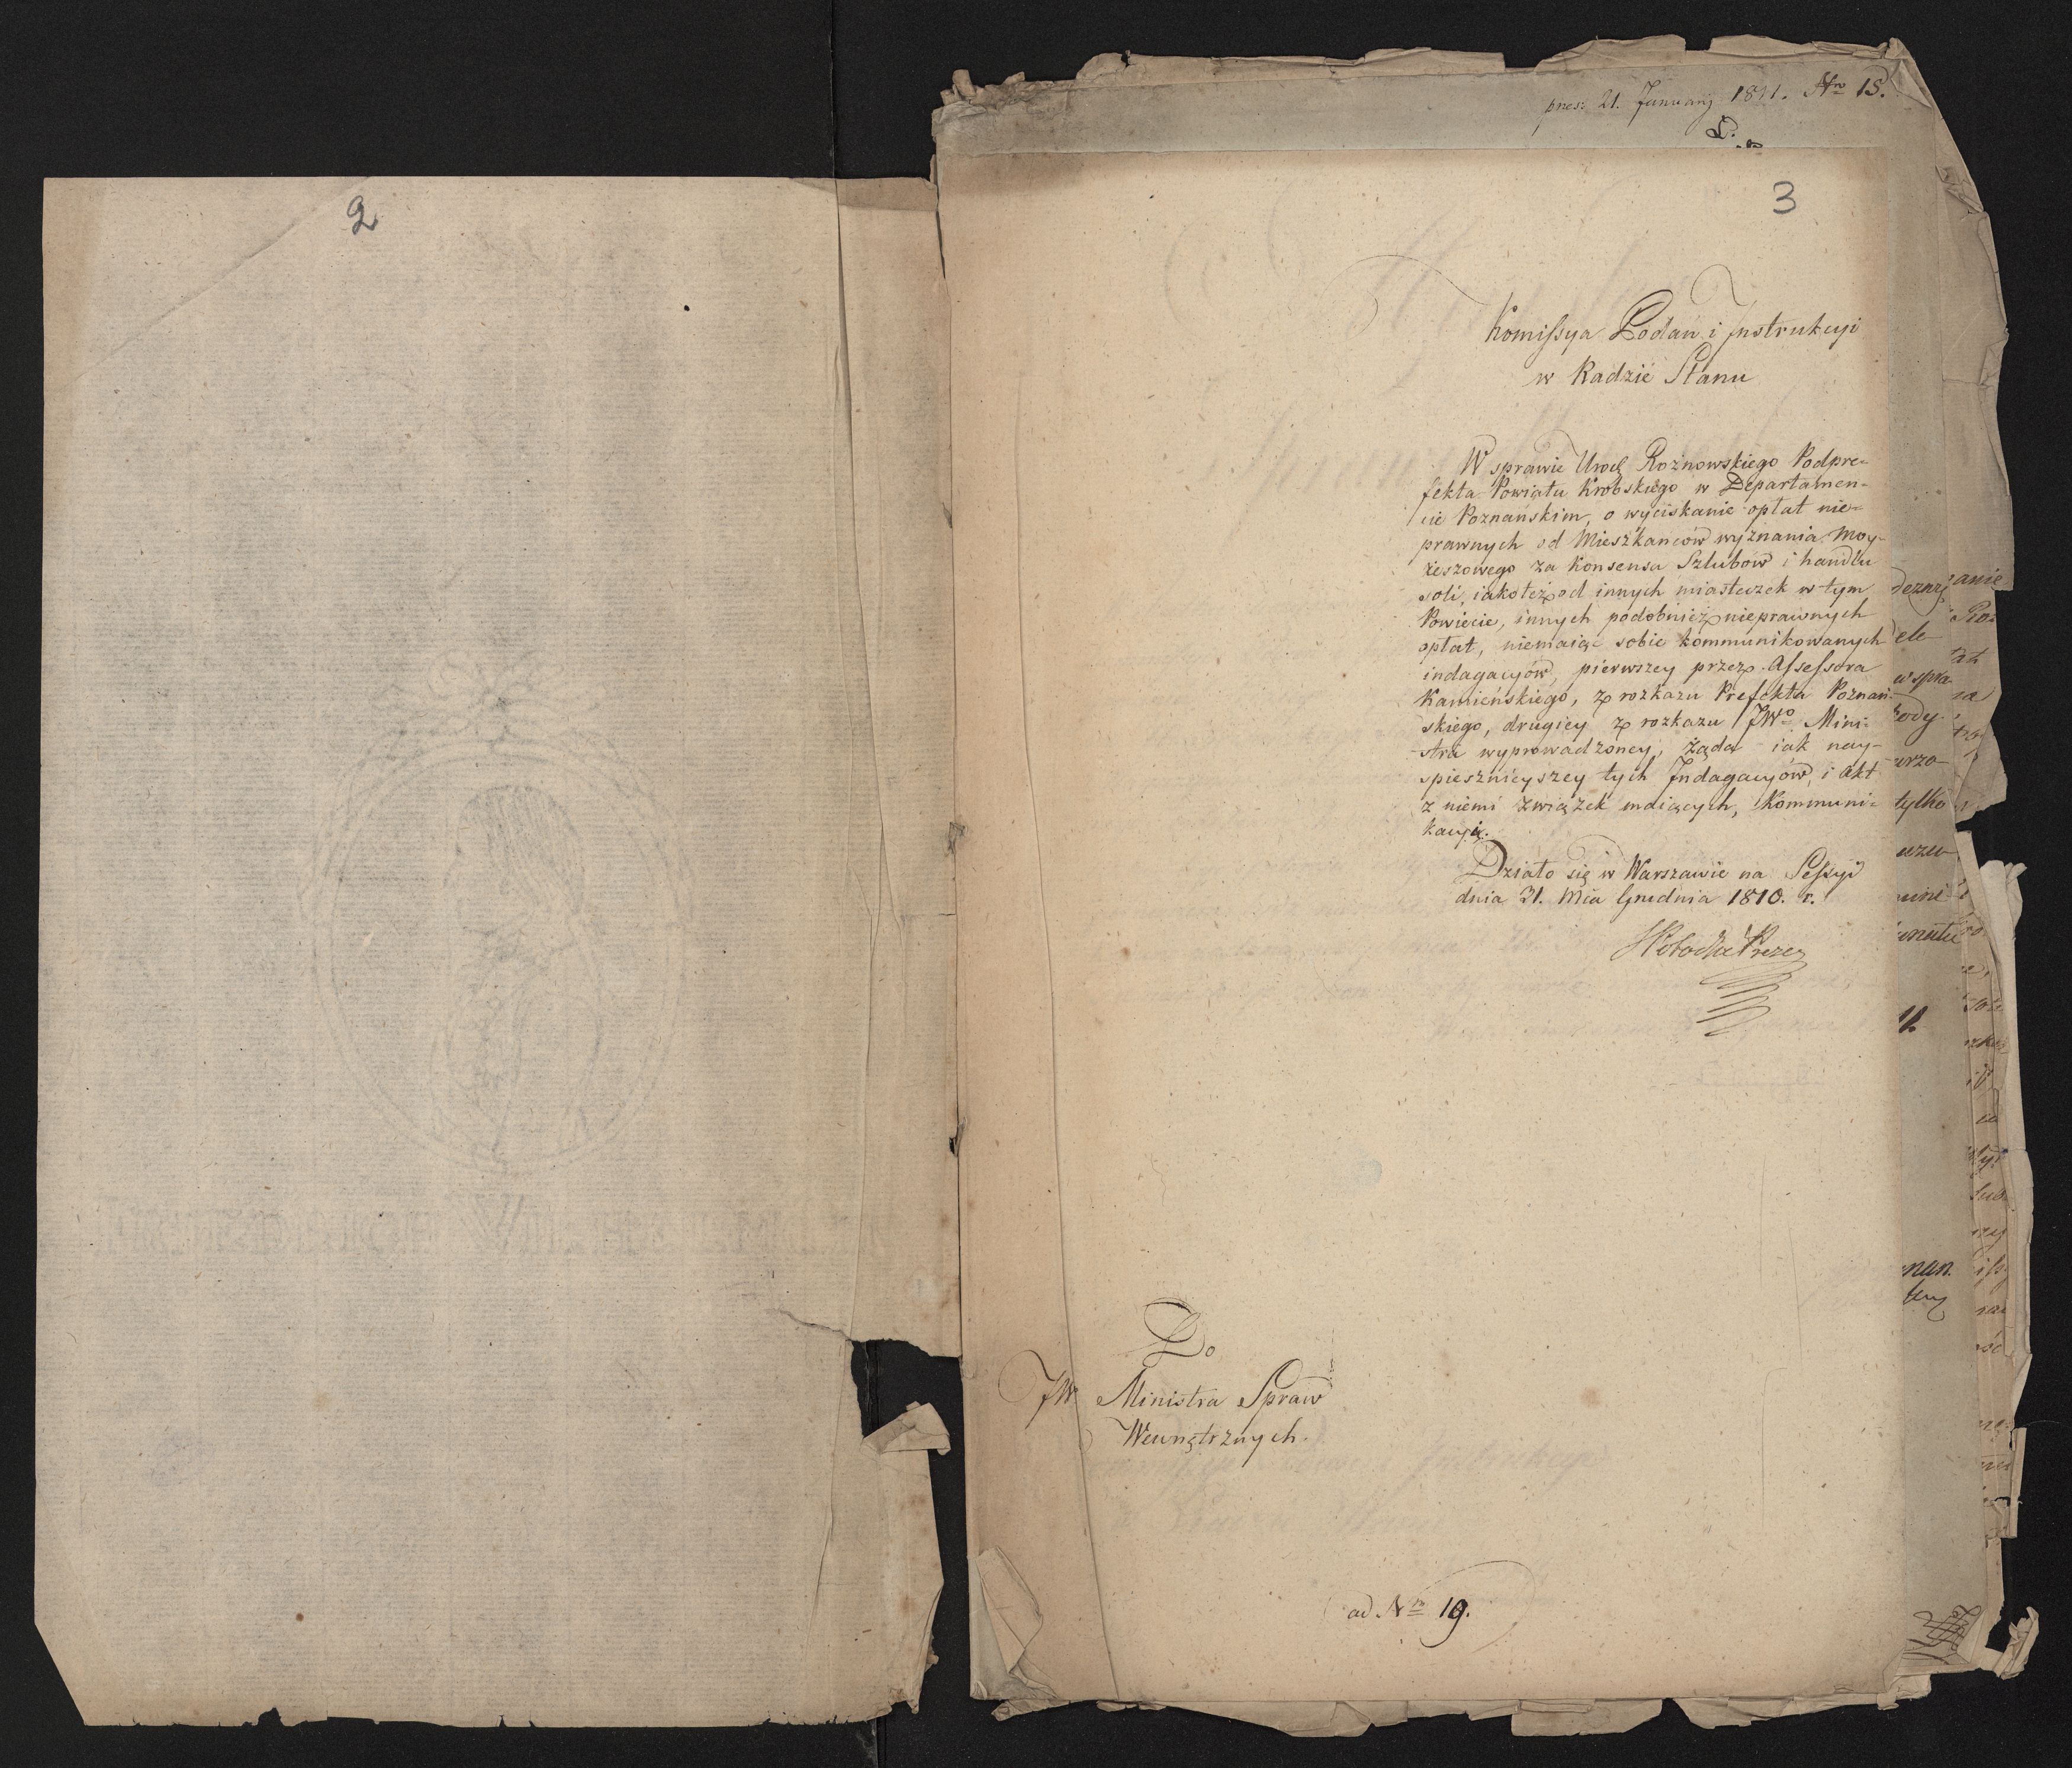 2
pres: 21. January 1811. Nro 15.
3
Komissya Podań i Instrukcyi
w Radzie Stanu
W sprawie Urod. Rożnowskiego Podpre-
fekta Powiatu Krobskiego w Departamen-
cie Poznańskim, o wyciskanie opłat nie-
prawnych od Mieszkańców wyznania Moy-
żeszowego za Konsensa Szlubów i handlu
soli, iakoteż od innych miasteczek w tym
Powiecie, innych podobnież nieprawnych
opłat, niemaiąc sobie kommunikowanych
indagacyów, pierwszey przez Assessora
Kamieńskiego, z rozkazu Prefekta Poznań-
skiego, drugiey z rozkazu JWo Mini-
stra wyprowadzoney, żąda iak nay-
spiesznieyszey tych Indagacyów, i Akt
z niemi związek maiących, Kommuni-
kacyi.
Działo się w Warszawie na Sessyi
dnia 31. Mca Grudnia 1810. r.
Prezes
Do
JW Ministra Spraw
Wewnętrznych.
ad Nro 19.